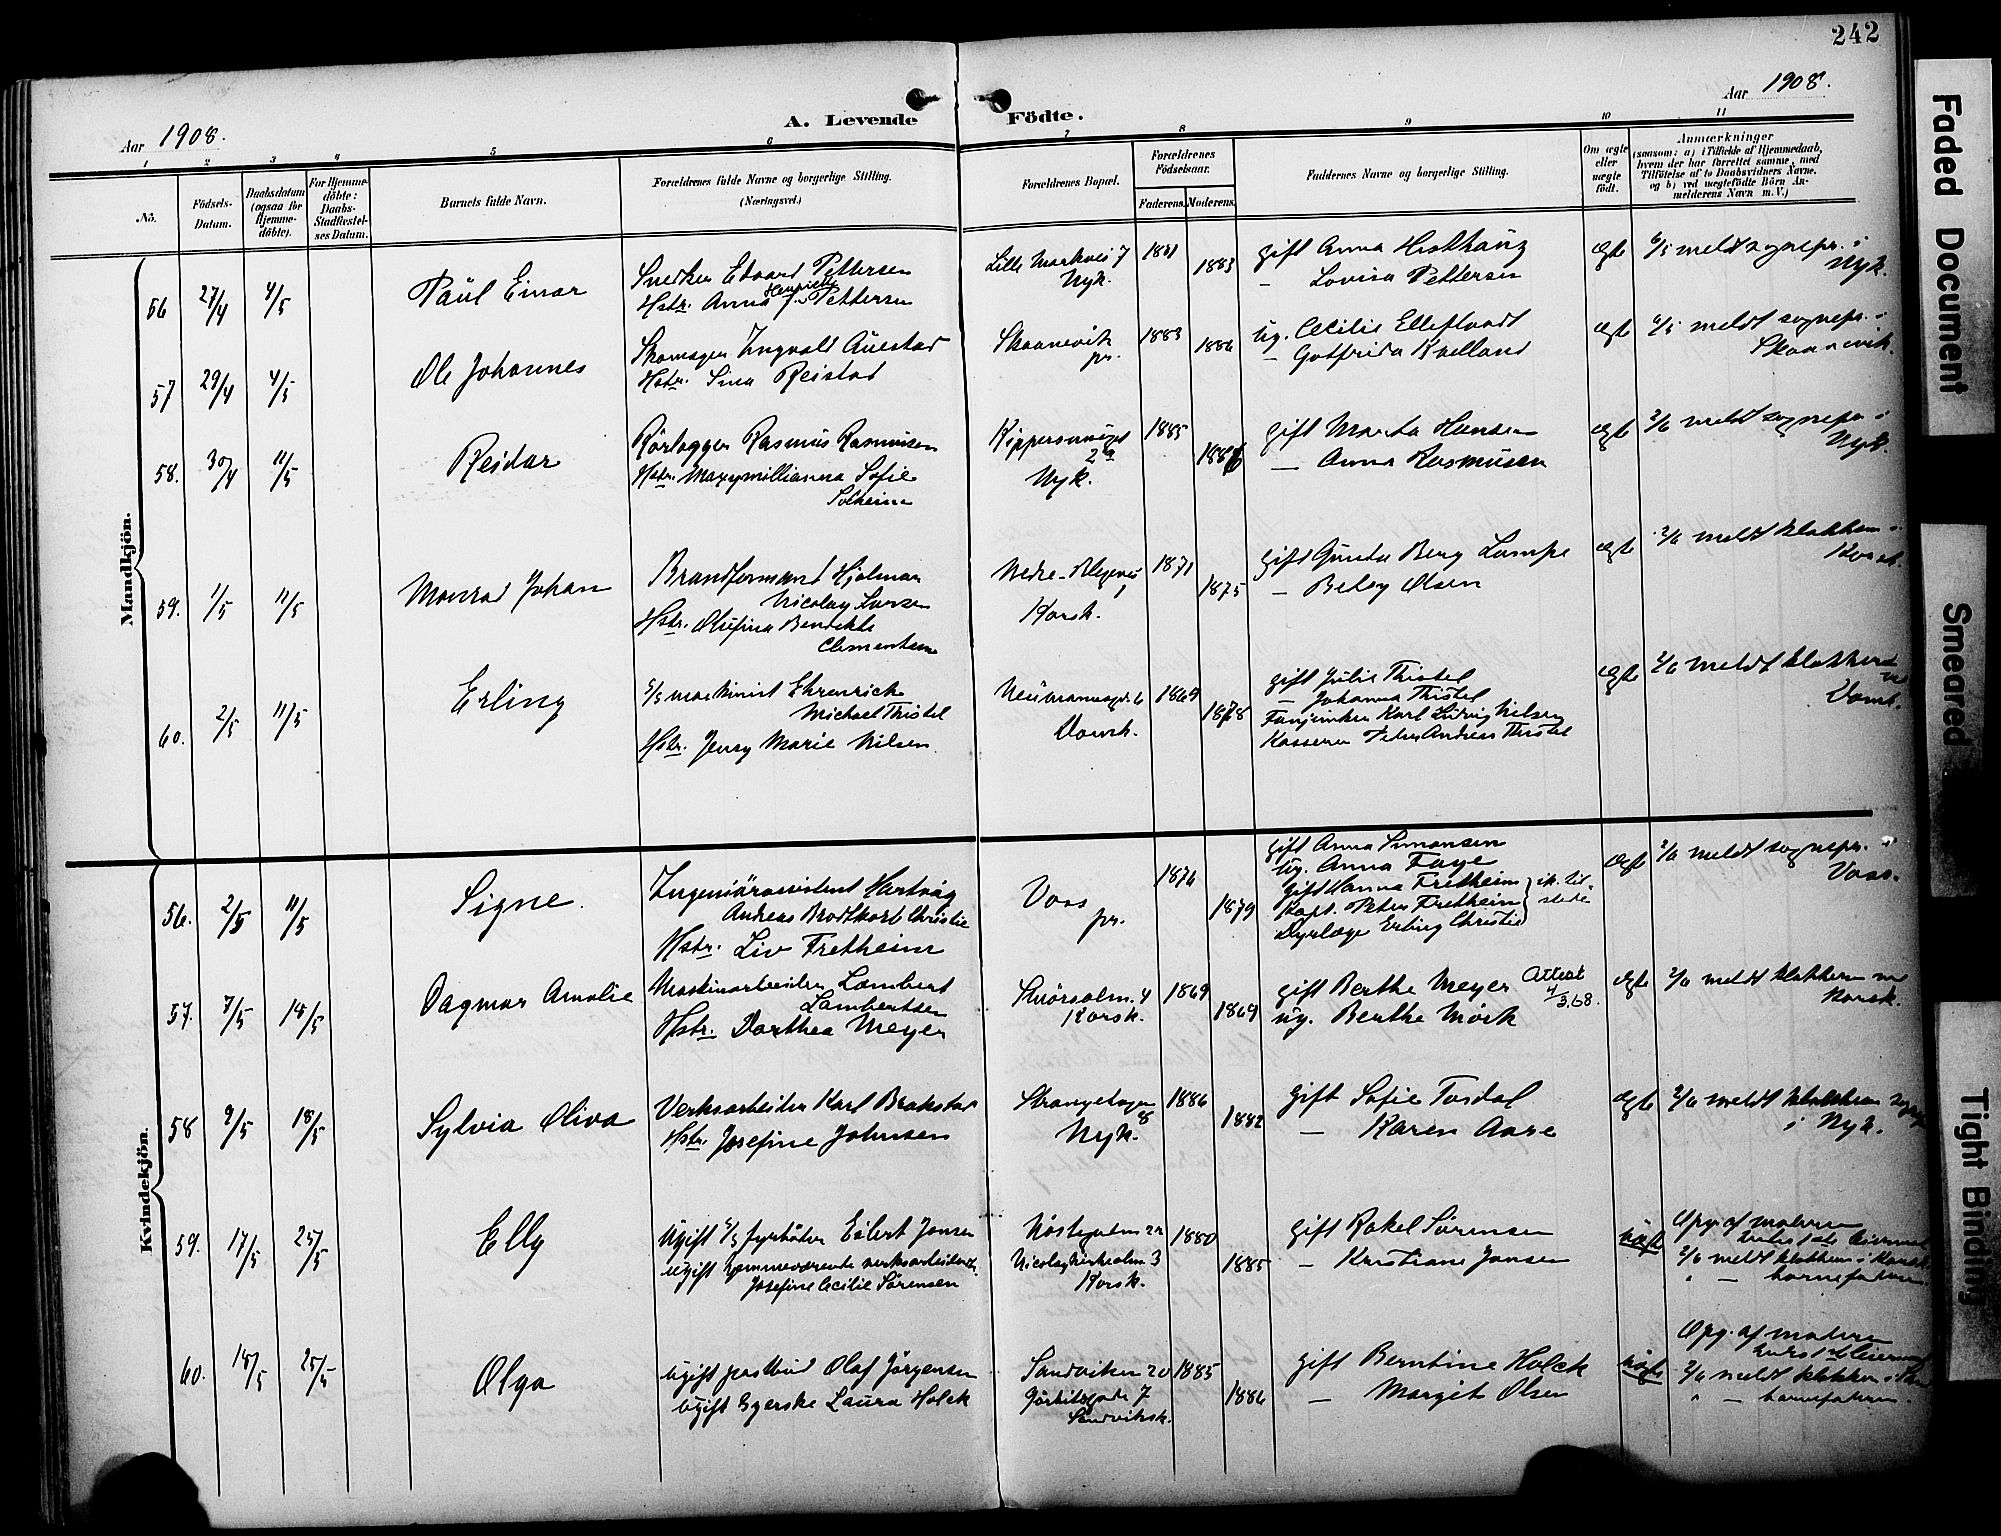 242
Aar 1908.
Aar 1908.
A. Levende Födte.
1 2 3 4 5 6 7 8 9 10 11
No.
Födsels-Datum.
Daabsdatum (ogsaa for Hjemme-döbte).
For Hjemme-döbte: Daabs-Stadfæstel-ses Datum.
Barnets fulde Navn.
Forældrenes fulde Navne og borgerlige Stilling.
(Næringsvei.)
Forældrenes Bopæl.
Forældrenes Födselsaar.
Faderens. Moderens.
Faddernes Navne og borgerlige Stilling.
Om ægte eller uægte födt.
Anmærkninger
(saasom: a) i Tilfælde af Hjemmedaab,
hvem der har forrettet samme, med
Tilföielse af to Daabsvidners Navne.
og b) ved uægtefödte Börn An-
melderens Navn m. V.)
Mandkjön.
56 27/4 4/5 Paul Einar
Snedker Edvard Pettersen
Hstr. Anna Henriette Pettersen
Lille Markvei 7
Nyk.
1881 1883
gift Anna
— Lovisa Pettersen
ægte
6/5 meldt sognepr. i
Nyk.
57 29/4 4/5 Ole Johannes
Skomager Ingvald Auestad
Hstr. Sina Reistad
Skaanevik
pr.
1883 1886
ug. Cecilie
— Gotfrida Kvelland
ægte
6/5 meldt sognepr. i
Skaanevik.
58. 30/4 11/5 Reidar
Rörlægger Rasmus Rasmussen
Hstr. Maxymillianna Sofie
Solheim
2a
Nyk.
1885 1886
gift Marta Hansen
— Anna Rasmussen
ægte
2/6 meldt sognepr. i
Nyk.
59. 1/5 11/5 Monrad Johan
Brandformand Hjalmar
Nicolay Larsen
Hstr. Olufina Bendikte
Clementsen
Nedre
Korsk.
1871 1875
gift Gunda Berg Lampe
— Betsy Olsen
ægte
2/6 meldt klokkeren i
Korsk.
60. 2/5 11/5 Erling
s/s maskinist Ehrenrich
Michael Thistel
Hstr. Jenny Marie Nilsen.
Neumannsgd. 6
Domk.
1869 1878
gift Julie Thistel
— Johanna Thistel
Fanejunker Karl Ludvig Nilsen
Kasserer Peter Andreas Thistel
ægte
2/6 meldt klokkeren
Domk.
Kvindekjön.
56. 2/5 11/5 Signe.
Ingeniörassistent Hartvig
Andreas Brodtkorb Christie
Hstr. Liv Fretheim
Voss
pr.
1876 1879
gift Anna Simonsen
ug. Anna Faye
gift Hanna Fretheim
Kapt. Peter Fretheim
Dyrlæge Erling Christie
ik. til-
stede
ægte
2/6 meldt sognepr. i
Voss.
57. 7/5 18/5 Dagmar Amalie
Maskinarbeider Lambert
Lambertsen
Hstr. Dorthea Meyer
4
Korsk.
1869 1869
gift Berthe Meyer
ug. Berthe Mörk
Attest
4/3.68.
ægte
2/6 meldt klokkeren
Korsk.
58 9/5 18/5 Sylvia Oliva
Verksarbeider Karl Brakstad
Hstr. Josefine Johnsen
Strangehagen
8
Nyk.
1886 1882
gift Sofie Tosdal
— Karen Aase
ægte
2/6 meldt
i Nyk.
59. 17/5 25/5 Elly
Ugift s/s fyrböter Eilert Jansen
ugift hjemmeværende
Josefine Cecilie Sörensen
Nicolaykirkealm. 3
Korsk.
1880 1885
gift Rakel Sörensen
— Kristiane Jansen
uægte
Opg. af moderen
2/6 meldt klokkeren i Korsk.
" — barnefaderen
60. 15/5 25/5 Olga
Ugift postbud Olaf Jörgensen
ugift Syerske Laura Holck
Sandviken 20
7
Sandviksk.
1885 1886
gift Berntine Holck
— Margit Olsen
uægte
Opg. af moderen
2/6 meldt klokkeren i
" — barnefaderen.
Faded Document
Smeared
Tight Binding